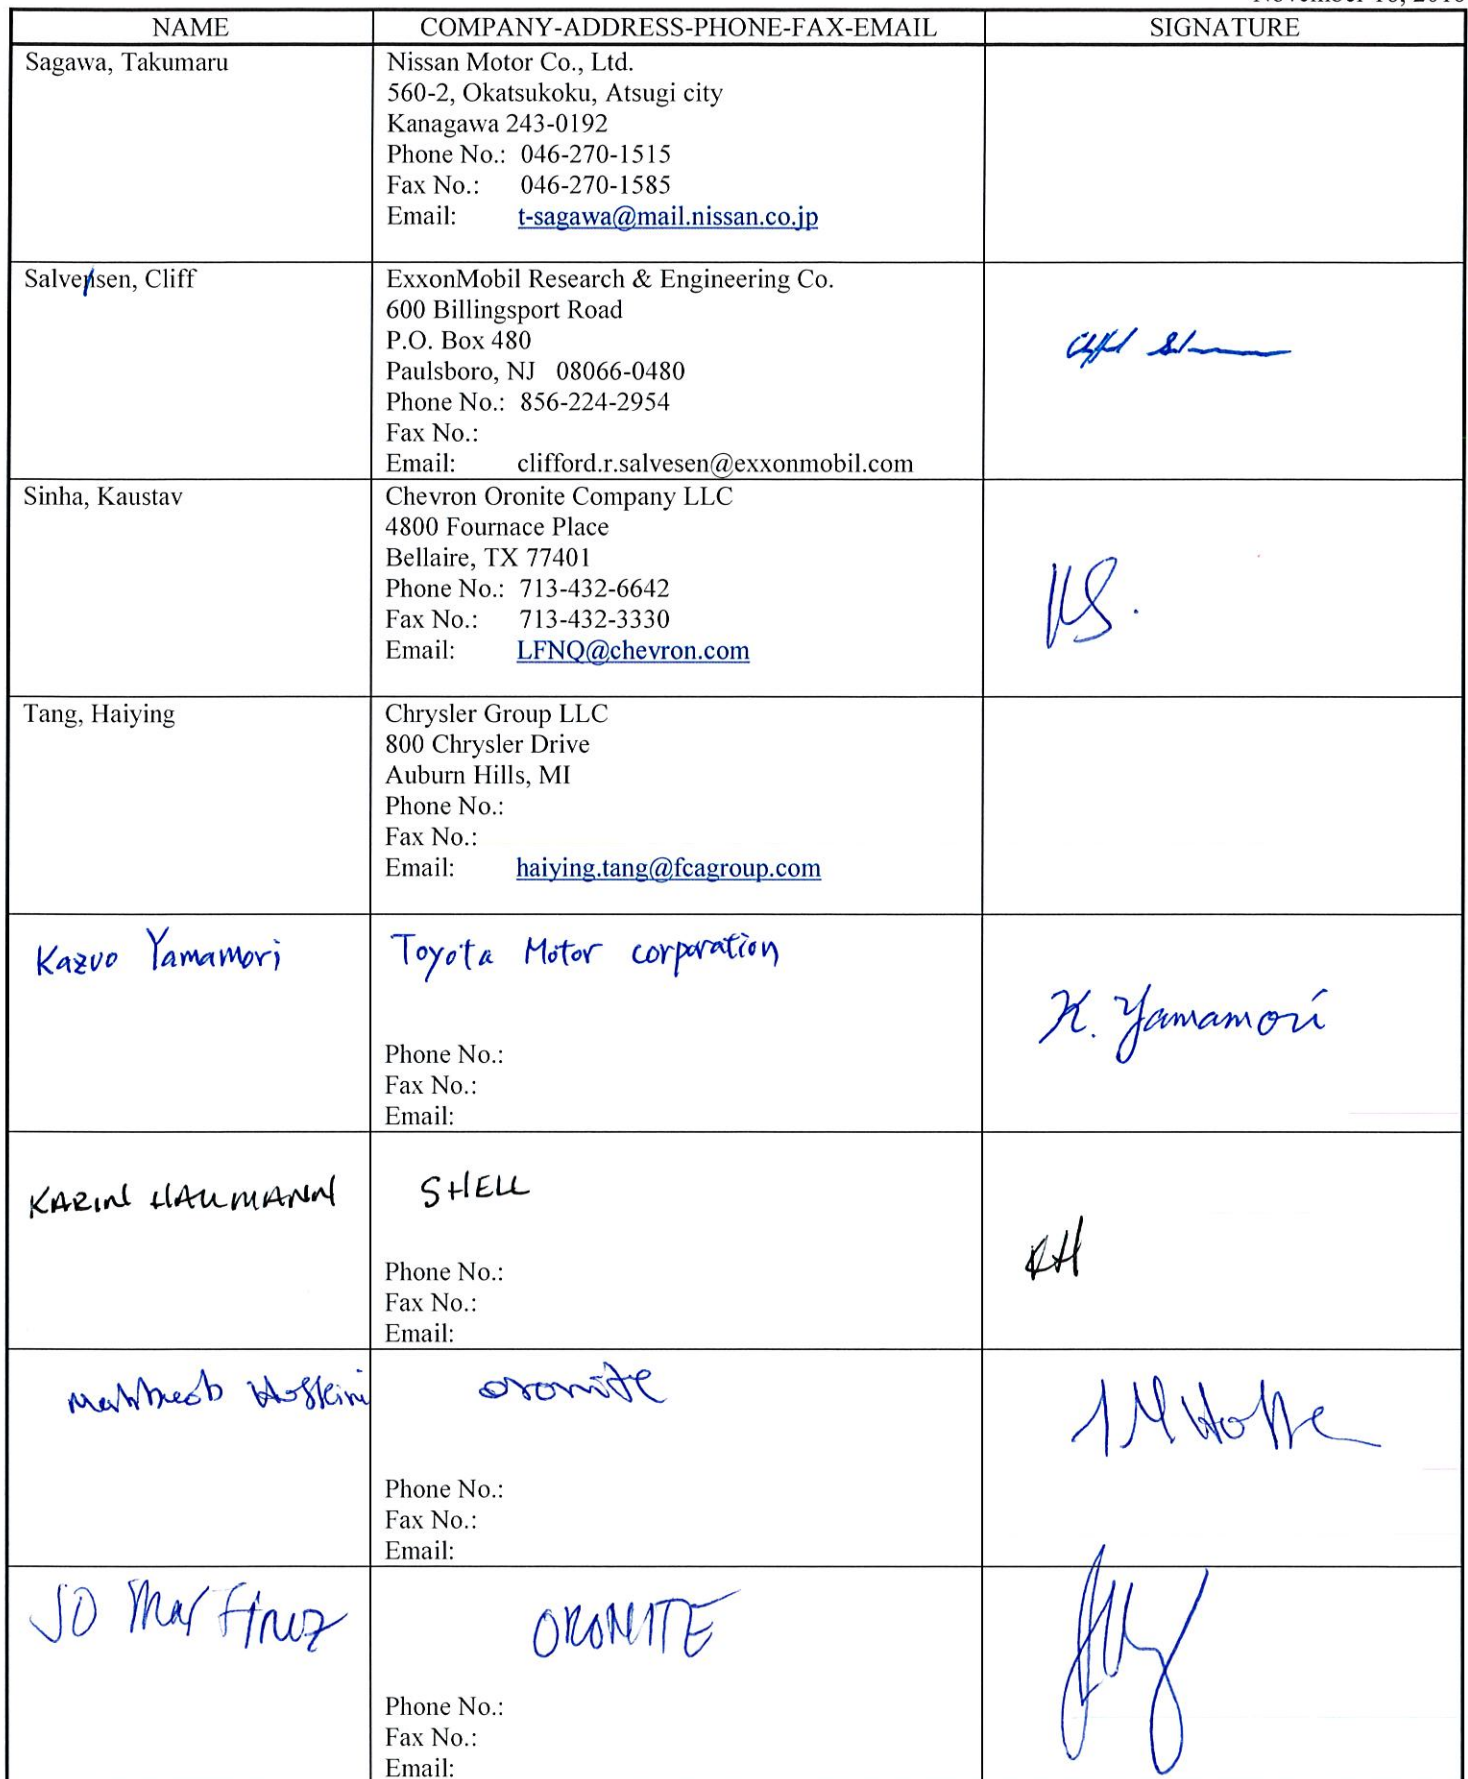 NAME COMPANY-ADDRESS-PHONE-FAX-EMAIL SIGNATURE
Sagawa, Takumaru
Nissan Motor Co., Ltd.
560-2, Okatsukoku, Atsugi city
Kanagawa 243-0192
Phone No.: 046-270-1515
Fax No.: 046-270-1585
Email: t-sagawa@mail.nissan.co.jp
Salvensen, Cliff
ExxonMobil Research & Engineering Co.
600 Billingsport Road
P.O. Box 480
Paulsboro, NJ 08066-0480
Phone No.: 856-224-2954
Fax No.:
Email: clifford.r.salvesen@exxonmobil.com
Sinha, Kaustav
Chevron Oronite Company LLC
4800 Fournace Place
Bellaire, TX 77401
Phone No.: 713-432-6642
Fax No.: 713-432-3330
Email: LFNQ@chevron.com
KS.
Tang, Haiying
Chrysler Group LLC
800 Chrysler Drive
Auburn Hills, MI
Phone No.:
Fax No.:
Email: haiying.tang@fcagroup.com
Kazuo Yamamori
Toyota Motor corporation
Phone No.:
Fax No.:
Email:
K. Yamamori
KARIN HAUMANN
SHELL
Phone No.:
Fax No.:
Email:
KH
Hosseini
oronite
Phone No.:
Fax No.:
Email:
JO Martinez
ORONITE
Phone No.:
Fax No.:
Email: